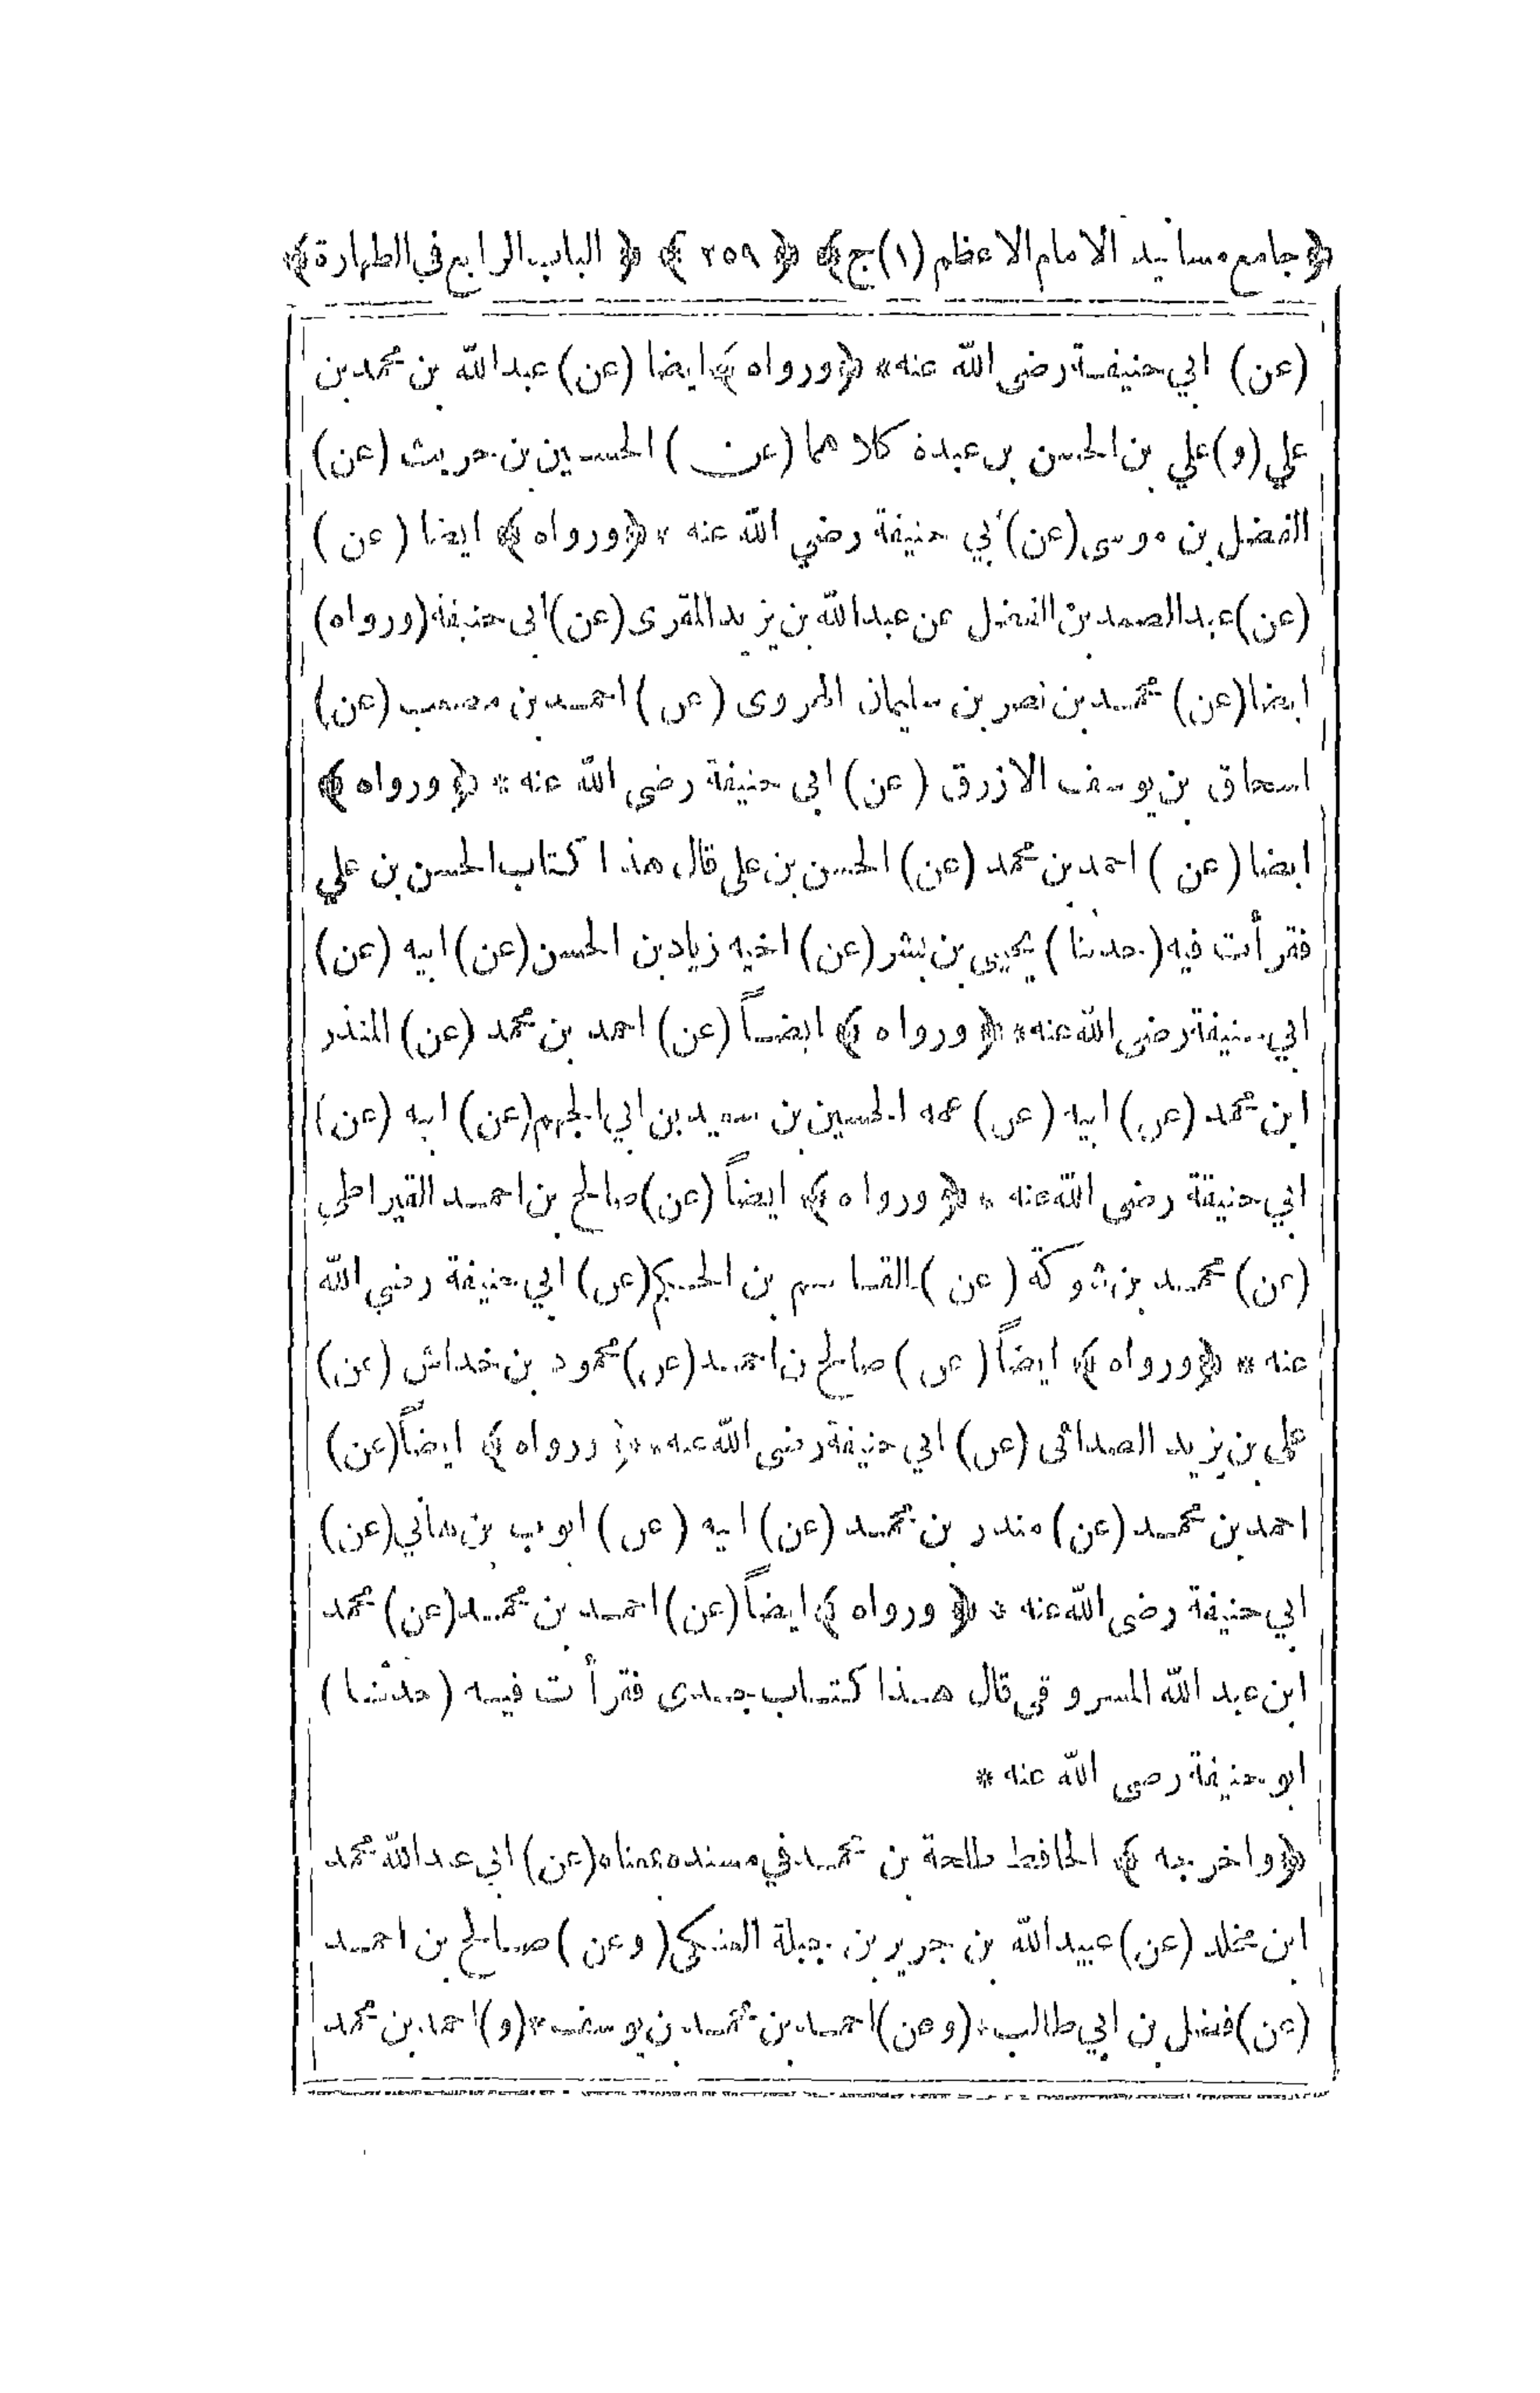 ﴿جامع مسانيد الامام الاعظم (١) ج﴾ ﴿ ٢٥٩ ﴾ ﴿ الباب الرابع في الطهارة﴾
(عن) ابي حنيفة رضى الله عنه * ﴿ورواه﴾ ايضا (عن) عبدالله بن محمد بن
علي (و) علي بن الحسن بن عبدة كلاهما (عن) الحسين بن حريث (عن)
الفضل بن موسى (عن) أبي حنيفة رضي الله عنه * ﴿ورواه﴾ ايضا (عن)
(عن) عبدالصمد بن الفضل عن عبدالله بن يزيد المقرى (عن) ابى حنيفة (ورواه)
ايضا (عن) محمد بن نصر بن سليمان الهروى (عن) احمد بن مصعب (عن)
اسحاق بن يوسف الازرق (عن) ابى حنيفة رضى الله عنه * ﴿ورواه﴾
ايضا (عن) احمد بن محمد (عن) الحسن بن على قال هذا كتاب الحسن بن علي
فقرأت فيه (حدثنا) يحيى بن بشر (عن) اخيه زياد بن الحسن (عن) ابيه (عن)
ابي حنيفة رضى الله عنه * ﴿ورواه﴾ ايضاً (عن) احمد بن محمد (عن) المنذر
ابن محمد (عن) ابيه (عن) عمه الحسين بن سعيد بن ابي الجهم (عن) ابيه (عن)
ابي حنيفة رضى الله عنه * ﴿ورواه﴾ ايضاً (عن) صالح بن احمد القيراطي
(عن) محمد بن شوكة (عن) القاسم بن الحكم (عن) ابي حنيفة رضي الله
عنه * ﴿ورواه﴾ ايضاً (عن) صالح بن احمد (عن) محمود بن خداش (عن)
على بن يزيد الصدائى (عن) ابي حنيفة رضى الله عنه * ﴿ورواه﴾ ايضاً (عن)
احمد بن محمد (عن) منذر بن محمد (عن) ابيه (عن) ايوب بن هاني (عن)
ابي حنيفة رضى الله عنه * ﴿ورواه﴾ ايضاً (عن) احمد بن محمد (عن) محمد
ابن عبد الله المسروقى قال هذا كتاب جدى فقرأت فيه (حدثنا)
ابو حنيفة رضى الله عنه *
﴿واخرجه﴾ الحافظ طلحة بن محمد في مسنده (عن) ابى عبدالله محمد
ابن مخلد (عن) عبيدالله بن جرير بن جبلة العتكى (وعن) صالح بن احمد
(عن) فضل بن ابي طالب * (وعن) احمد بن محمد بن يوسف * (و) احمد بن محمد